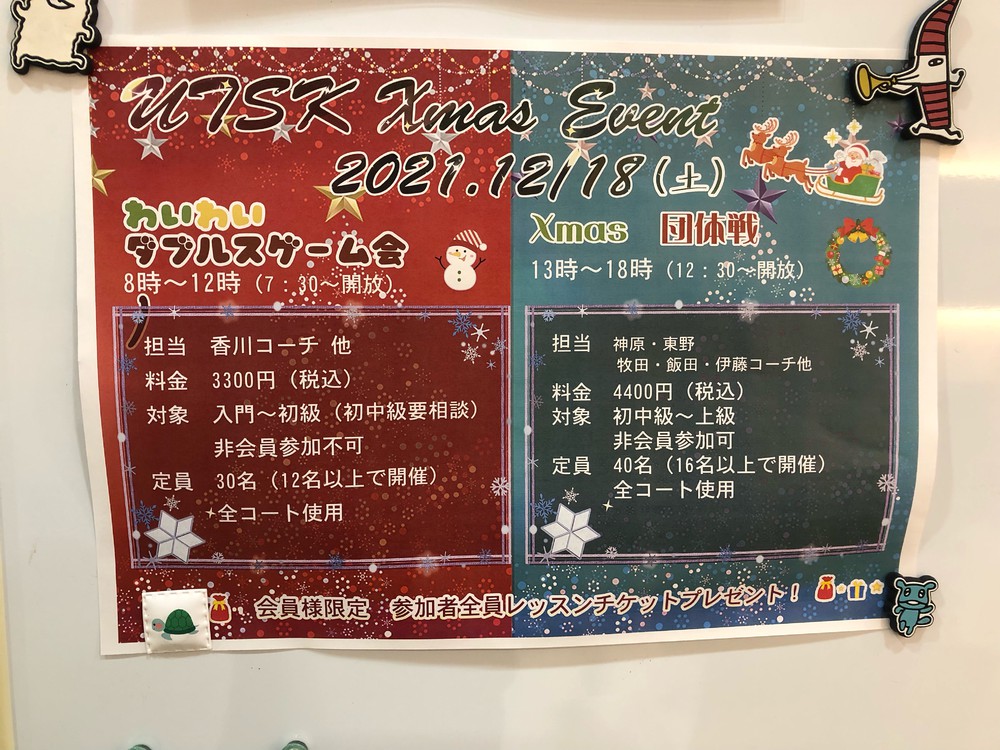 UTSK Xmas Event
2021.12/18(土)
わいわい
ダブルスゲーム会
8時～12時（7：30～開放）
担当 香川コーチ 他
料金 3300円（税込）
対象 入門～初級（初中級要相談）
非会員参加不可
定員 30名（12名以上で開催）
全コート使用
Xmas 団体戦
13時～18時（12：30～開放）
担当 神原・東野
牧田・飯田・伊藤コーチ他
料金 4400円（税込）
対象 初中級～上級
非会員参加可
定員 40名（16名以上で開催）
全コート使用
会員様限定 参加者全員レッスンチケットプレゼント！